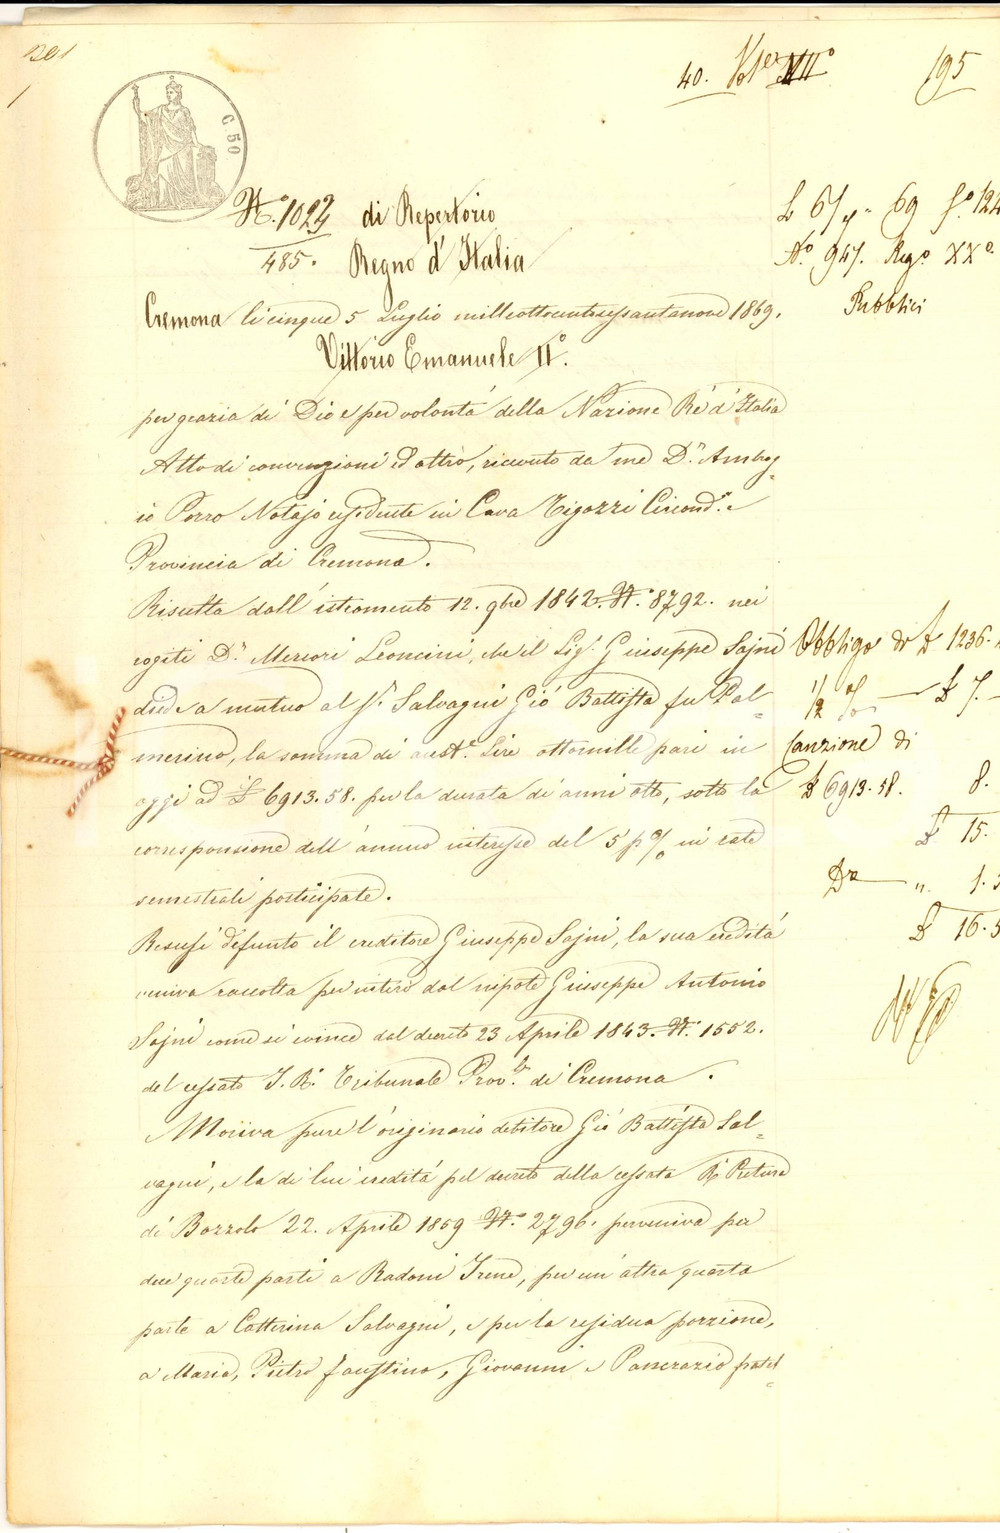 201
40. Vol. VII°
195
C. 50
N.° 1023 di Repertorio
485. Regno d'Italia
L 6/7 " 69 f.° 124
N.° 947. Reg.° XX°
Pubblici
Cremona li cinque 5 Luglio milleottocentosessantanove 1869.
Vittorio Emanuele II°.
per grazia di Dio e per volontá della Nazione Ré d'Italia
Atto di convenzioni ed altro, ricevuto da me D.r Ambrog=
io Porro Notajo residente in Cava Tigozzi Circond.° e
Provincia di Cremona.
Risulta dall'istromento 12. 9bre 1842. N.° 8792. nei
rogiti D.r Mercori Leoncini, che il Sig.r Giuseppe Sajni
diede a mutuo al S.r Salvagni Gió Battista fu Pal=
merino, la somma di aust.e Lire ottomille pari in
oggi ad £ 6913.58. per la durata di anni otto, sotto la
corresponsione dell'annuo interesse del 5 p% in rate
semestrali posticipate.
Obbligo di £ 1236.
1/2 % — £ 7. —
Canzione di
£ 6913.58. 8.
£ 15.
Da — " 1.5
£ 16.5
Resosi defunto il creditore Giuseppe Sajni, la sua ereditá
veniva raccolta per intero dal nipote Giuseppe Antonio
Sajni come si evince dal decreto 23 Aprile 1843. N.° 1552.
del cessato I. R. Tribunale Prov.le di Cremona.
Moriva pure l'originario debitore Gió Battista Sal=
vagni, e la di lui ereditá pel decreto della cessata R. Pretura
di Bozzolo 22. Aprile 1859 N.° 2796. perveniva per
due quarte parti a Radoni Irene, per un'altra quarta
parte a Catterina Salvagni, e per la residua porzione,
a Maria, Pietro Faustino, Giovanni e Pancrazio fratel=